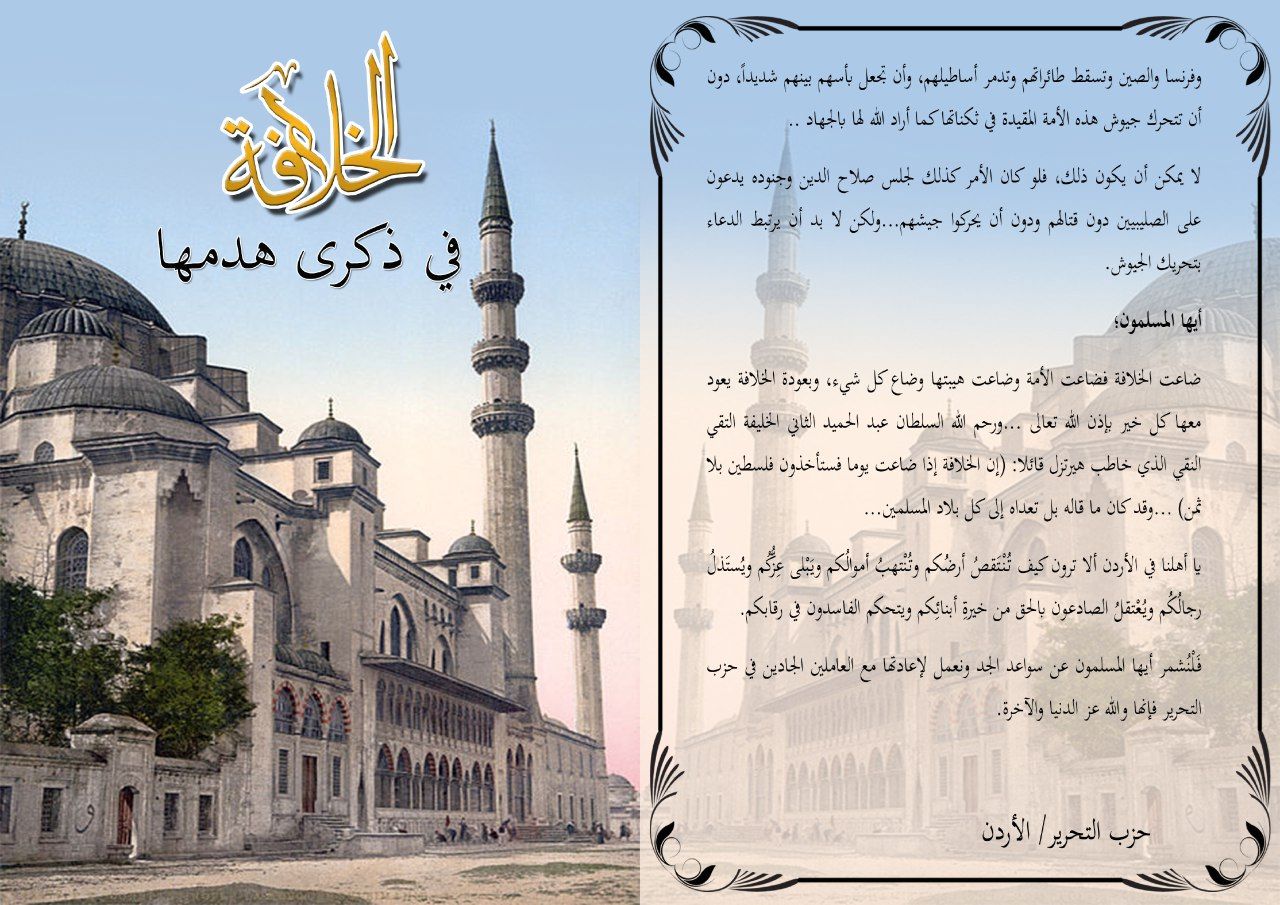 الخلافة
في ذكرى هدمها
وفرنسا والصين وتسقط طائراتهم وتدمر أساطيلهم، وأن تجعل بأسهم بينهم شديداً، دون
أن تتحرك جيوش هذه الأمة المقيدة في ثكناتها كما أراد الله لها بالجهاد ..
لا يمكن أن يكون ذلك، فلو كان الأمر كذلك لجلس صلاح الدين وجنوده يدعون
على الصليبيين دون قتالهم ودون أن يحركوا جيشهم...ولكن لا بد أن يرتبط الدعاء
بتحريك الجيوش.
أيها المسلمون؛
ضاعت الخلافة فضاعت الأمة وضاعت هيبتها وضاع كل شيء، وبعودة الخلافة يعود
معها كل خير بإذن الله تعالى ...ورحم الله السلطان عبد الحميد الثاني الخليفة التقي
النقي الذي خاطب هيرتزل قائلا: (إن الخلافة إذا ضاعت يوما فستأخذون فلسطين بلا
ثمن) ...وقد كان ما قاله بل تعداه إلى كل بلاد المسلمين...
يا أهلنا في الأردن ألا ترون كيف تُنْتَقصُ أرضُكم وتُنْتهبُ أموالُكم ويَبْلى عِزُّكُم ويُستَذلُ
رجالُكُم ويُعْتقلُ الصادعون بالحق من خيرةِ أبنائِكم ويتحكم الفاسدون في رقابكم.
فَلْنُشمر أيها المسلمون عن سواعد الجد ونعمل لإعادتها مع العاملين الجادين في حزب
التحرير فإنها والله عز الدنيا والآخرة.
حزب التحرير/ الأردن